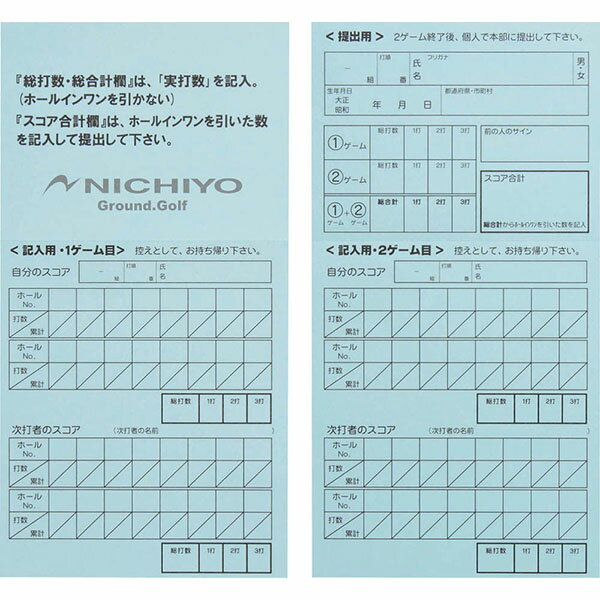 『総打数・総合計欄』は、「実打数」を記入。
(ホールインワンを引かない)
『スコア合計欄』は、ホールインワンを引いた数
を記入して提出して下さい。
NICHIYO
Ground.Golf
<記入用・1ゲーム目> 控えとして、お持ち帰り下さい。
自分のスコア － 組 打順 番 氏名
ホールNo.
打数 累計
ホールNo.
打数 累計
総打数 1打 2打 3打
次打者のスコア (次打者の名前 )
ホールNo.
打数 累計
ホールNo.
打数 累計
総打数 1打 2打 3打
<提出用> 2ゲーム終了後、個人で本部に提出して下さい。
－ 組 打順 番 氏名 フリガナ 男・女
生年月日 大正 昭和 年 月 日 都道府県・市町村
①ゲーム 総打数 1打 2打 3打
②ゲーム 総打数 1打 2打 3打
①+②ゲーム 総合計 1打 2打 3打
前の人のサイン
スコア合計
総合計からホールインワンを引いた数を記入
<記入用・2ゲーム目> 控えとして、お持ち帰り下さい。
自分のスコア － 組 打順 番 氏名
ホールNo.
打数 累計
ホールNo.
打数 累計
総打数 1打 2打 3打
次打者のスコア (次打者の名前 )
ホールNo.
打数 累計
ホールNo.
打数 累計
総打数 1打 2打 3打